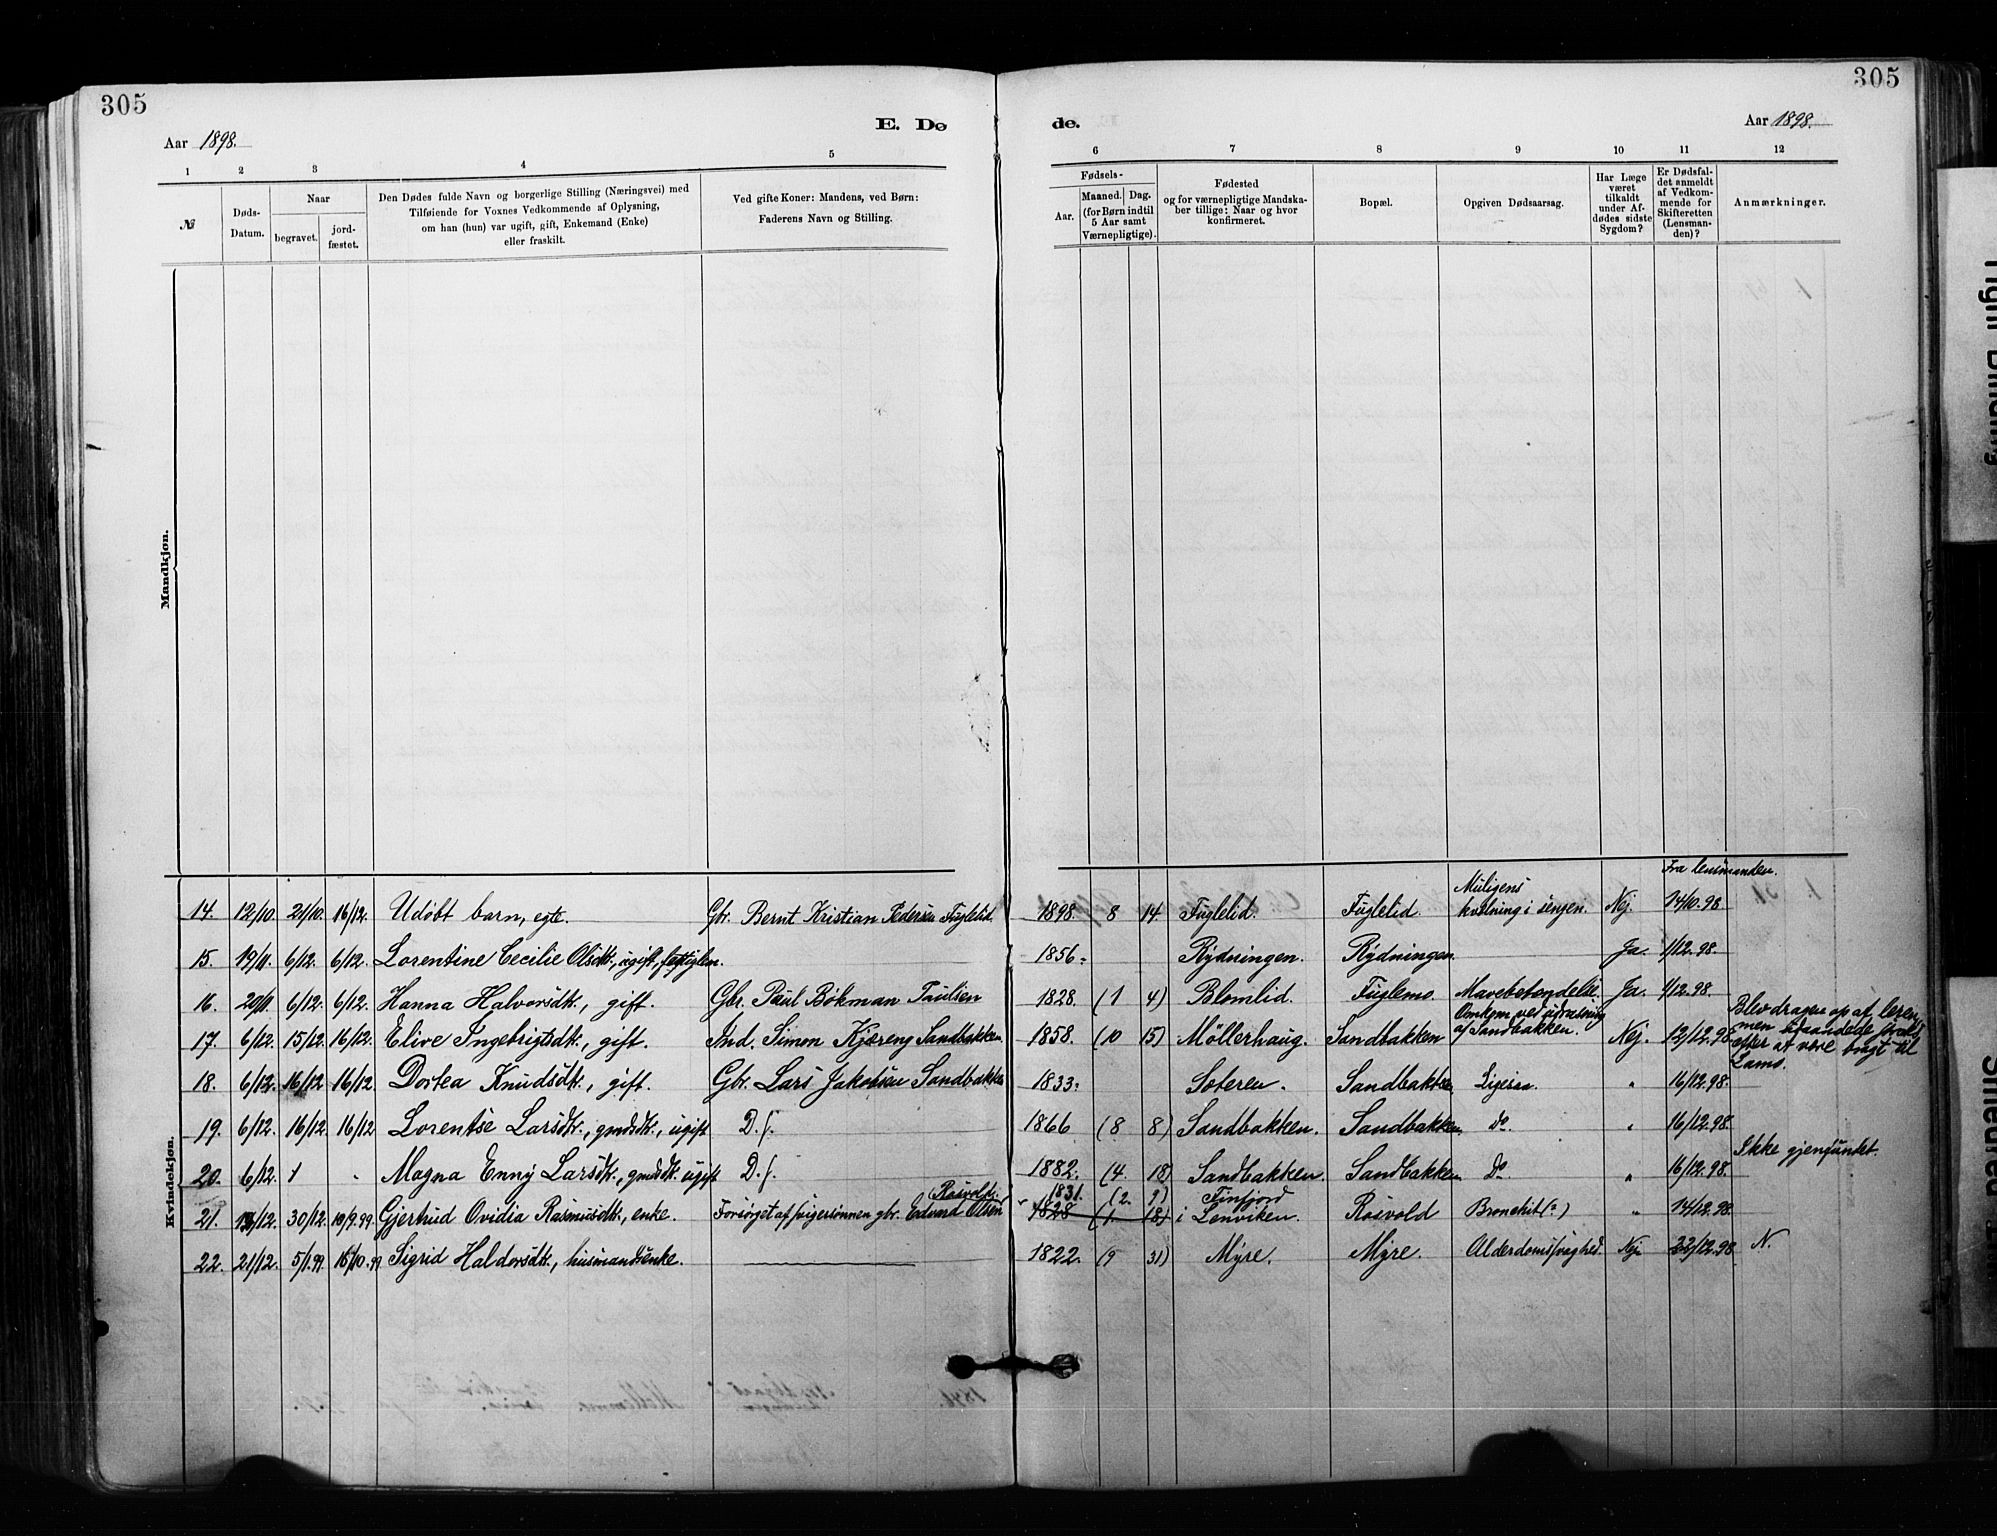 305
305
Aar 1898.
E. Dø
de.
Aar 1898.
1 2 3 4 5
6 7 8 9 10 11 12
№
Døds-
Datum.
Naar
begravet.
jord-
fæstet.
Den Dødes fulde Navn og borgerlige Stilling (Næringsvei) med
Tilføiende for Voxnes Vedkommende af Oplysning,
om han (hun) var ugift, gift, Enkemand (Enke)
eller fraskilt.
Ved gifte Koner: Mandens, ved Børn:
Faderens Navn og Stilling.
Fødsels-
Aar.
Maaned. Dag.
(for Børn indtil
5 Aar samt
Værnepligtige).
Fødested
og for værnepligtige Mandska-
ber tillige: Naar og hvor
konfirmeret.
Bopæl.
Opgiven Dødsaarsag.
Har Læge
været
tilkaldt
under Af-
dødes sidste
Sygdom?
Er Dødsfal-
det anmeldt
af Vedkom-
mende for
Skifteretten
(Lensman-
den)?
Anmærkninger.
Mandkjøn.
Kvindekjøn.
Fra lensmanden.
14. 12/10. 21/10. 16/12. Udöbt barn, egte. Gbr. Bernt Kristian Pedersen Fuglelid. 1898. 8 14 Fuglelid. Fuglelid Muligens kvælning i sengen. Nej. 14/10.98.
15. 19/11. 6/12. 6/12. Lorentine Cecilie Olsdtr., ugift, fattiglem. 1856. Rydningen. Rydningen. Ja. 1/12.98.
16. 20/11. 6/12. 6/12. Hanna Halvorsdtr., gift. Gbr. Paul Bökman Paulsen 1828. (1 4) Blomlid. Fuglemo. Mavebetendelse. Ja. 1/12.98.
17. 6/12. 15/12. 16/12. Elive Ingebrigtsdtr., gift. Ind. Simon Kjæreng Sandbakken. 1858. (10 15) Möllerhaug. Sandbakken Omkom ved udrasning af Sandbakken. Nej. 12/12.98. Blev dragen op af leren, men udaandede strax efter at være bragt til Lamo.
18. 6/12. 16/12 16/12 Dortea Knudsdtr., gift. Gbr. Lars Jakobsen Sandbakken 1833. Soteren. Sandbakken Ligesaa. " 16/12.98.
19. 6/12. 16/12. 16/12 Lorentse Larsdtr., gmdsdtr., ugift D. f. 1866 (8 8) Sandbakken. Sandbakken. do. " 16/12.98.
20. 6/12. Magna Enny Larsdtr., gmdsdtr. ugift D. f. 1882. (4. 18) Sandbakken. Sandbakken do " 16/12.98. Ikke gjenfundet.
21. 13/12. 30/12. 10/9.99. Gjertrud Ovidia Rasmusdtr., enke. Forsörget af svigersönnen gbr. Edvard Olsen Rosvold. 1831. (2. 9) 1828 (1. 18) Finfjord i Lenviken. Rosvold Bronchit (?) " 14/12.98.
22. 21/12. 5/1.99. 16/10.99 Sigrid Haldorsdtr., husmandsenke. 1822. (9 31) Myre. Myre. Alderdomssvaghed. Nej. 22/12.98. N.